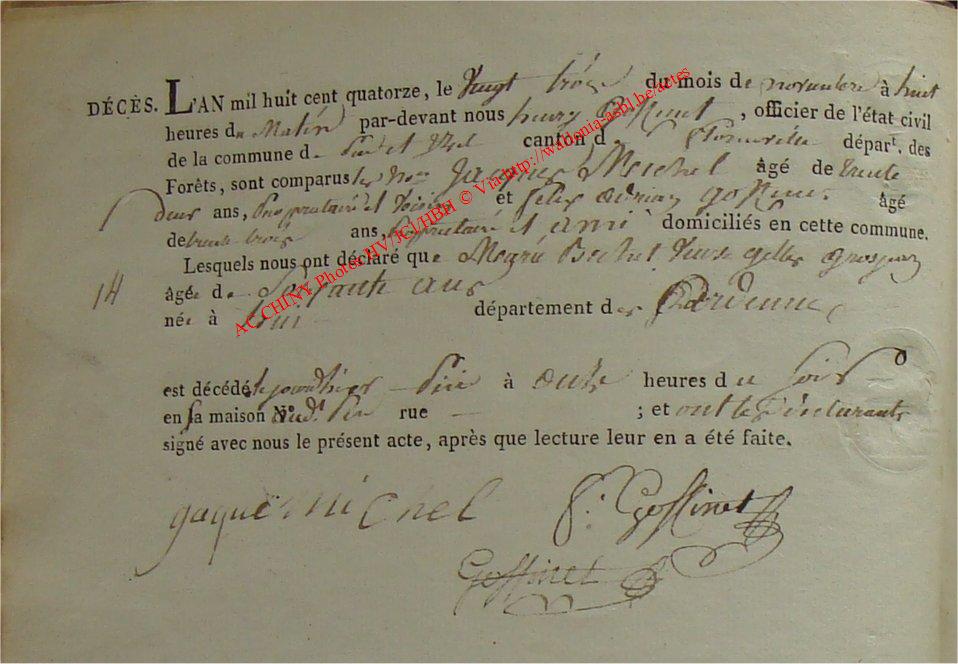 DÉCÈS. L'AN mil huit cent quatorze, le Vingt trois du mois de novembre à huit
heures du Matin par-devant nous henry Goffinet, officier de l'état civil
de la commune d canton d florenville départ. des
Forêts, sont comparus les Jacques Michel âgé de trente
deux ans, proprietaire et Voisin et felix Goffinet âgé
de trente trois ans, proprietaire et ami domiciliés en cette commune.
Lesquels nous ont déclaré que Marie Veuve gilles
14 âgée de Soixante ans
née à département des Ardennes
est décédée à onze heures du Soir
en sa maison N° rue — ; et ont les déclarants
signé avec nous le présent acte, après que lecture leur en a été faite.
gaque michel f. Goffinet
Goffinet
ACCHINY Photos HV/JCl/HBH © Via http://wallonia-asbl.be/actes